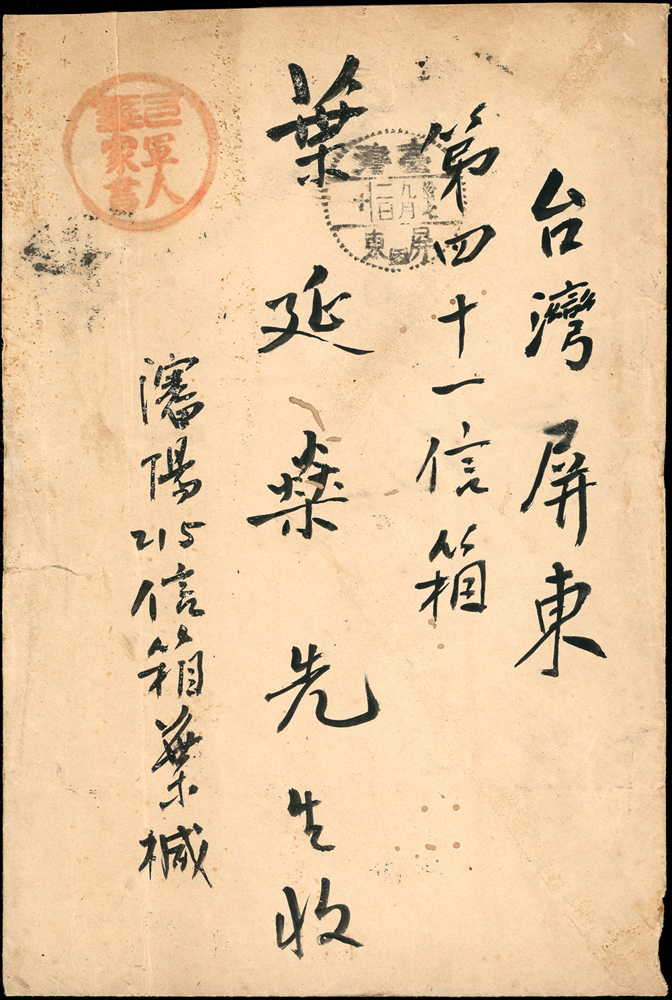 台灣屏東
第四十一信箱
葉延燊先生收
瀋陽215信箱葉椷
軍人
家書
九月
二日
屏東